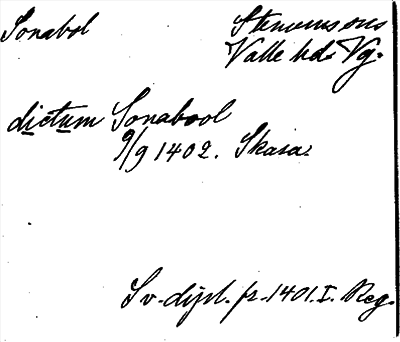 Sonabol
Stenums sns
Valle hd. Vg.
dictum Sonabool
9/9 1402. Skara.
Sv. dipl. fr. 1401. I. Reg.